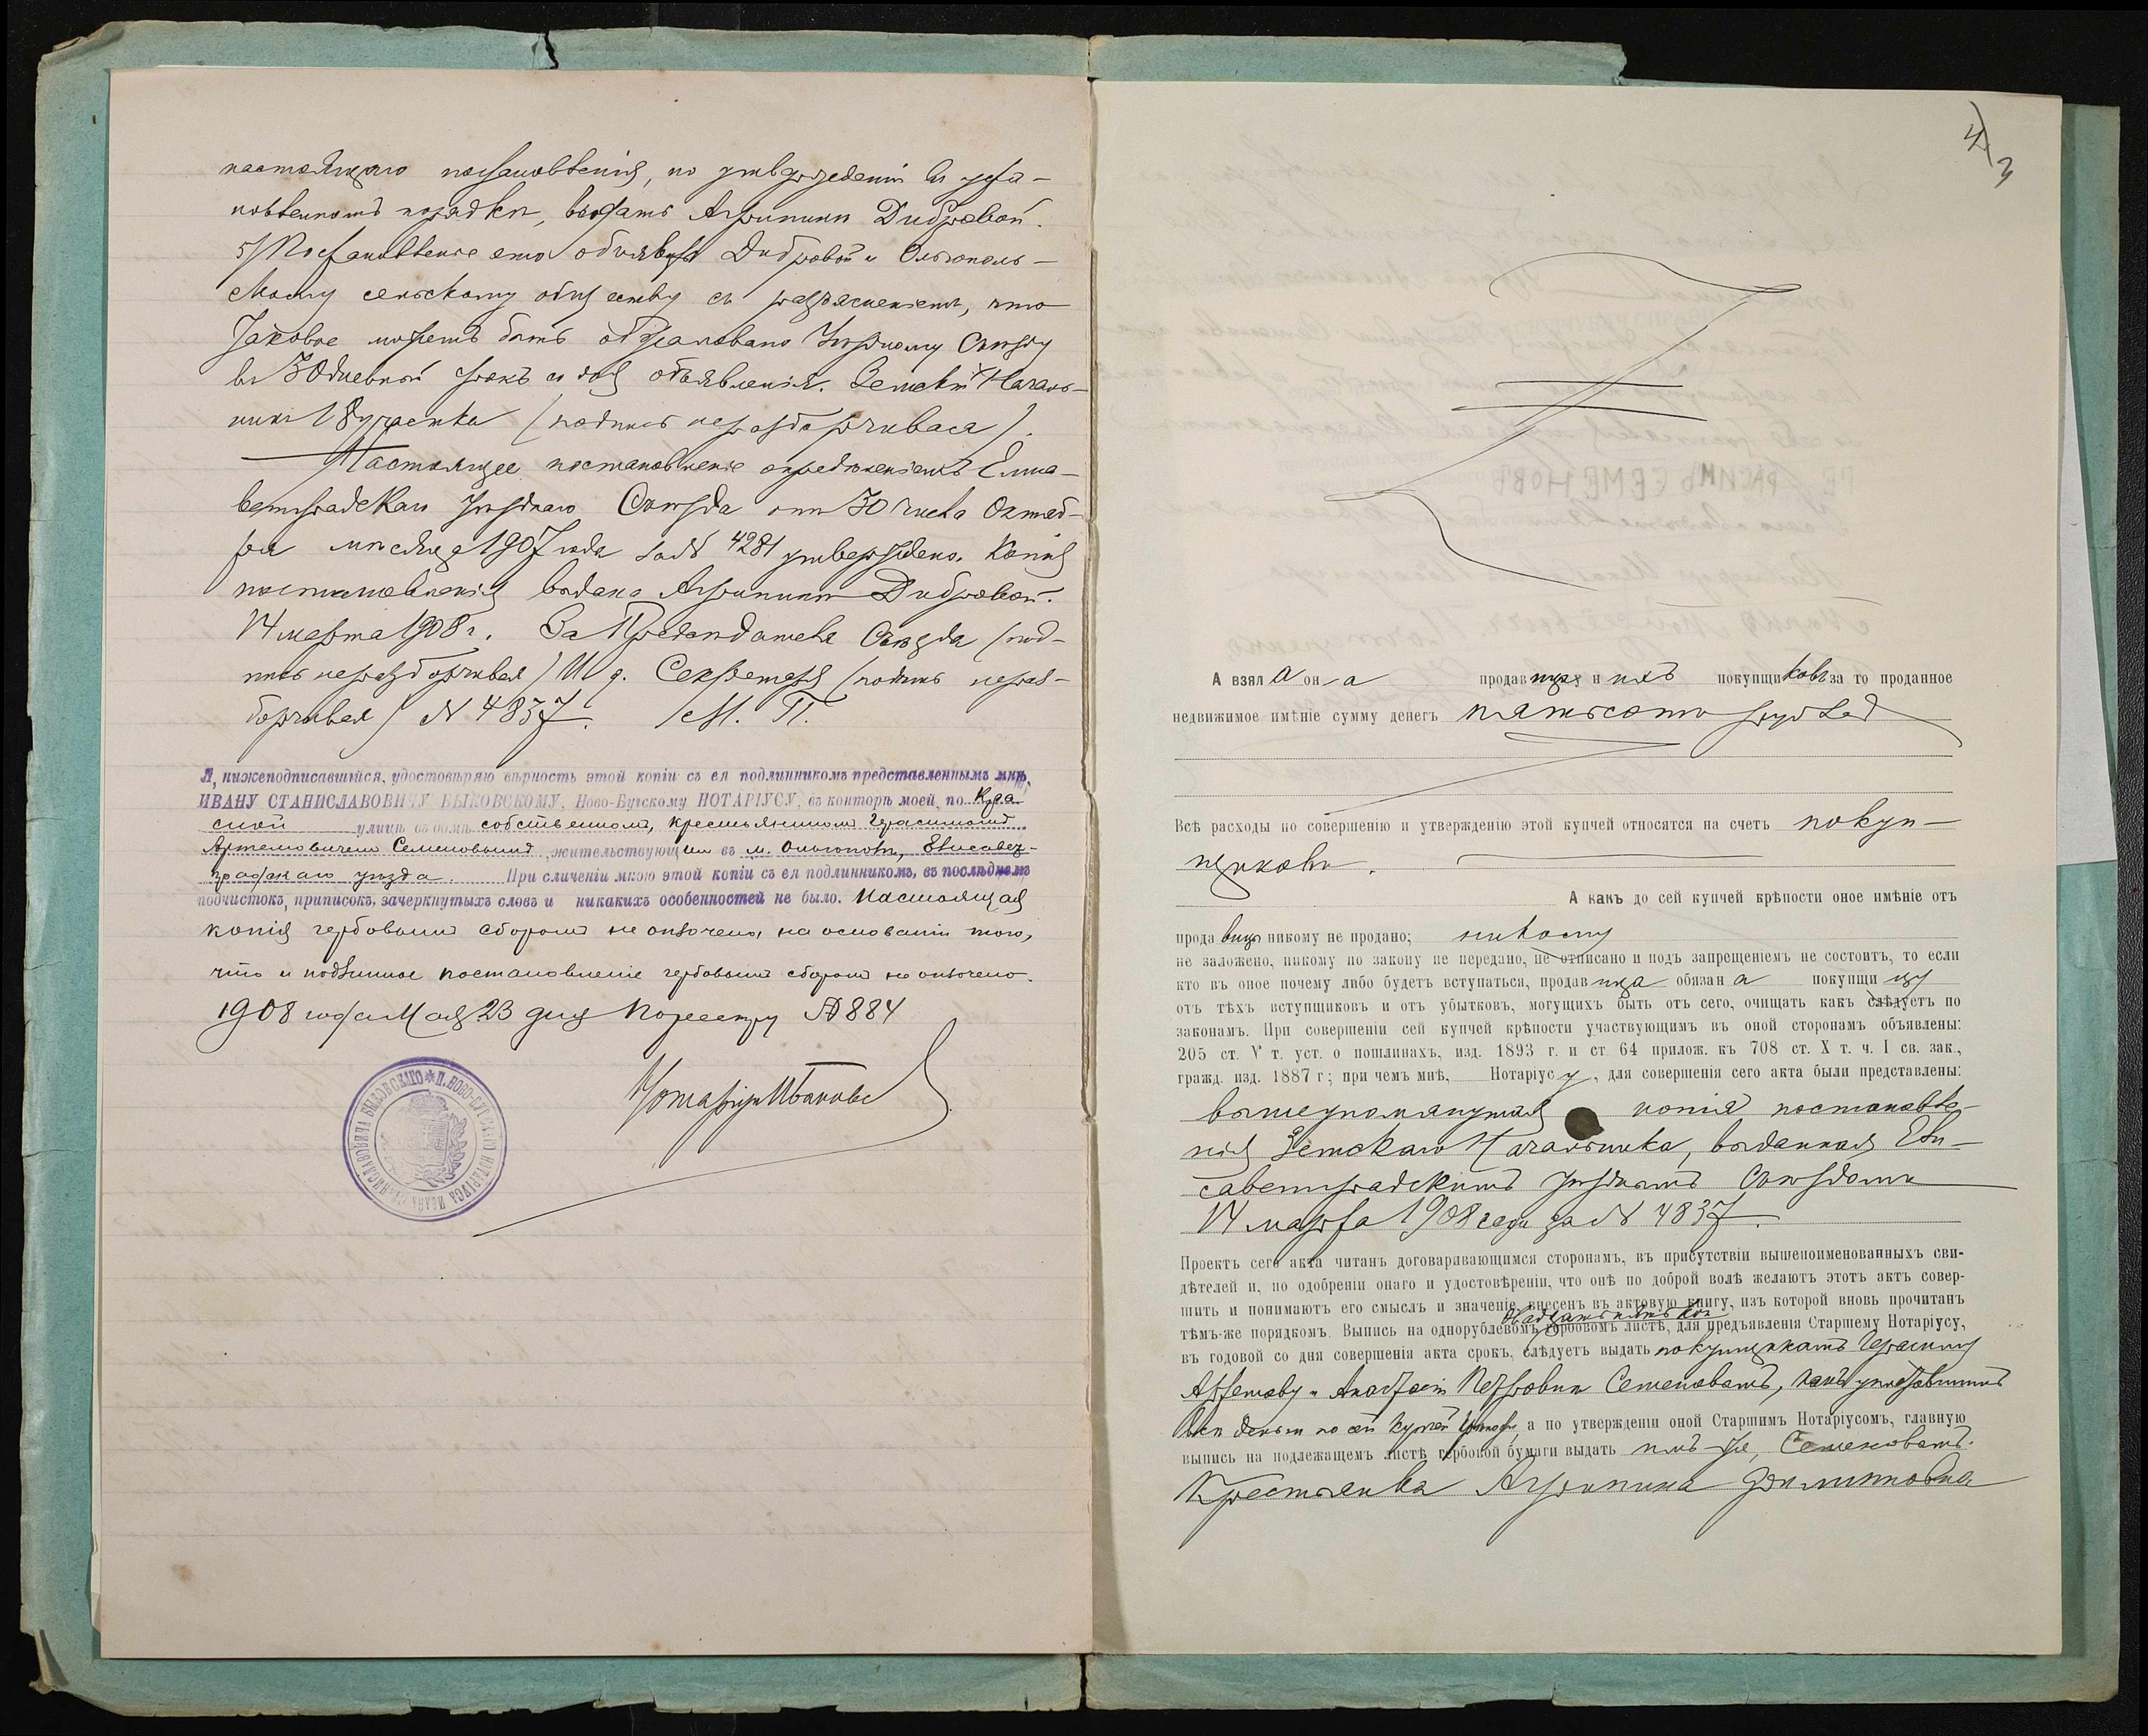 настоящаго постановленія, по утвержденіи въ уста-
новленномъ порядкѣ, выдать Агрипинѣ Дибровой.
5/ Постановленіе это объявить Дибровой и Ольгополь-
скому сельскому обществу съ разъясненіемъ, что
таковое можетъ быть обжаловано Уѣздному Съѣзду
въ 30 дневный срокъ со дня объявленія. Земскій Началь-
никъ 18 участка (подпись неразборчивая).
Настоящее постановленіе опредѣленіемъ Елиса-
ветградскаго Уѣзднаго Съѣзда отъ 30 числа Октяб-
ря мѣсяца 1907 года за № 4281 утверждено. Копія
постановленія выдана Агрипинѣ Дибровой.
14 марта 1908 г. За Предсѣдателя Съѣзда (под-
пись неразборчивая) И. д. Секретаря (подпись нераз-
борчивая) № 4837. М. П.
Я, нижеподписавшійся, удостовѣряю вѣрность этой копіи съ ея подлинникомъ представленнымъ мнѣ,
ИВАНУ СТАНИСЛАВОВИЧУ БЫКОВСКОМУ, Ново-Бугскому НОТАРІУСУ, въ конторѣ моей, по Крас
ной улицѣ въ домѣ собственномъ, крестьяниномъ Герасимомъ
Артемовичемъ Семеновымъ, жительствующимъ въ м. Ольгополѣ, Елисавет-
градскаго уѣзда. При сличеніи мною этой копіи съ ея подлинникомъ, въ послѣднемъ
подчистокъ, приписокъ, зачеркнутыхъ словъ и никакихъ особенностей не было. Настоящая
копія гербовымъ сборомъ не оплочена, на основаніи того,
что и подлинное постановленіе гербовымъ сборомъ не оплочено.
1908 года Мая 23 дня По реестру № 884
Нотаріусъ И Быковс
ИВАНА СТАНИСЛАВОВИЧА БЫКОВСКАГО * П. НОВО-БУГСКАГО НОТАРІУСА
3
А взяла она продавица у нихъ покупщиковъ за то проданное
недвижимое имѣніе сумму денегъ пятьсотъ рублей
Всѣ расходы по совершенію и утвержденію этой купчей относятся на счетъ покуп-
щиковъ.
А какъ до сей купчей крѣпости оное имѣніе отъ
продавицы никому не продано; никому
не заложено, никому по закону не передано, не отписано и подъ запрещеніемъ не состоитъ, то если
кто въ оное почему либо будетъ вступаться, продавица обязана покупщицу
отъ тѣхъ вступщиковъ и отъ убытковъ, могущихъ быть отъ сего, очищать какъ слѣдуетъ по
законамъ. При совершеніи сей купчей крѣпости участвующимъ въ оной сторонамъ объявлены:
205 ст. V т. уст. о пошлинахъ, изд. 1893 г. и ст 64 прилож. къ 708 ст. X т. ч. I св. зак.,
гражд. изд. 1887 г; при чемъ мнѣ, Нотаріусу, для совершенія сего акта были представлены:
вышеупомянутая копія постановле-
нія Земскаго Начальника, выданная Ели-
саветградскимъ Уѣзднымъ Съѣздомъ
14 марта 1908 года за № 4837.
Проектъ сего акта читанъ договаривающимся сторонамъ, въ присутствіи вышепоименованныхъ сви-
дѣтелей и, по одобреніи онаго и удостовѣреніи, что онѣ по доброй волѣ желаютъ этотъ актъ совер-
шить и понимаютъ его смыслъ и значеніе, внесенъ въ актовую книгу, изъ которой вновь прочитанъ
двадцать пять коп
тѣмъ-же порядкомъ. Выпись на однорублевомъ гербовомъ листѣ, для предъявленія Старшему Нотаріусу,
въ годовой со дня совершенія акта срокъ, слѣдуетъ выдать покупщикамъ Герасиму
Артемову и Анастасіи Петровнѣ Семеновымъ, какъ уплатившимъ
всѣ деньги по сей купчей а по утвержденіи оной Старшимъ Нотаріусомъ, главную
выпись на подлежащемъ листѣ гербовой бумаги выдать имъ-же, Семеновымъ.
Крестьянка Агрипина Филипповна